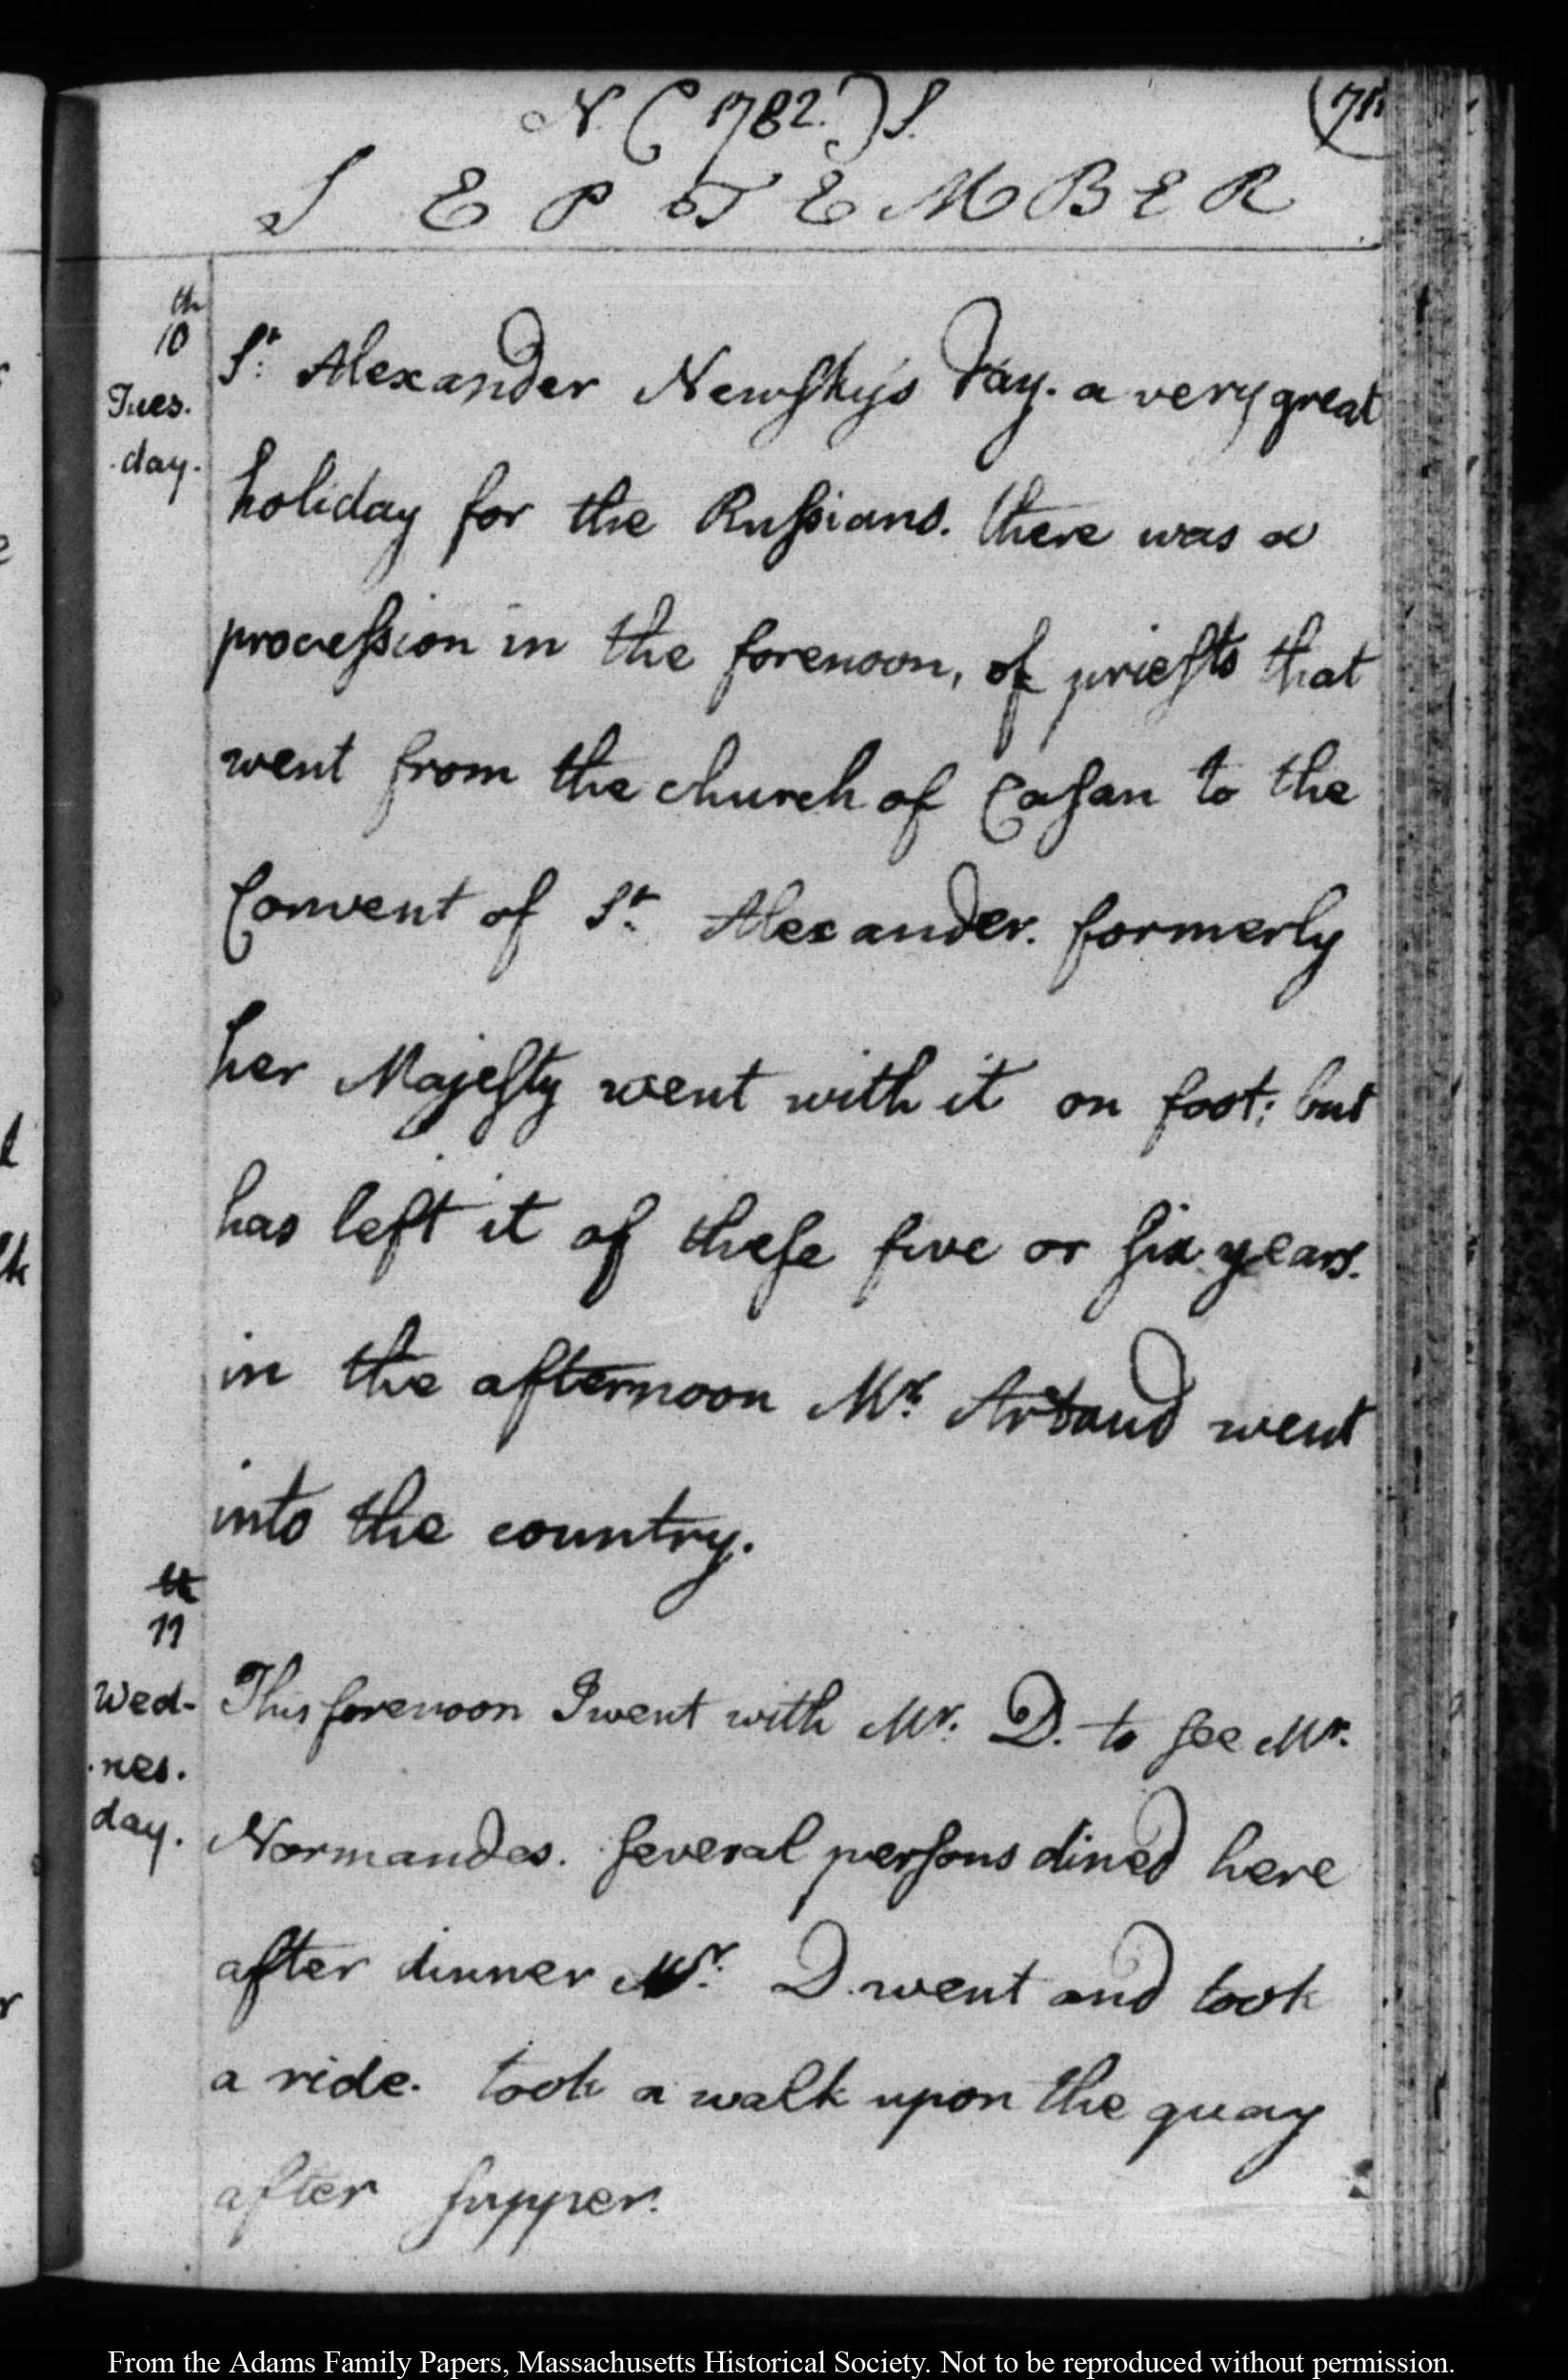 N. (1782.) S.
SEPTEMBER
th
10
Tues.
day.
St. Alexander Newsky's Day. a very great
holiday for the Russians. there was a
procession in the forenoon, of priests that
went from the church of Casan to the
Convent of St. Alexander. formerly
her Majesty went with it on foot; but
has left it of these five or six years.
in the afternoon Mr. Artaud went
into the country.
th
11
Wed-
nes.
day.
This forenoon I went with Mr. D. to see Mr.
Normandes. several persons dined here
after dinner Mr. D. went and took
a ride. took a walk upon the quay
after supper.
From the Adams Family Papers, Massachusetts Historical Society. Not to be reproduced without permission.